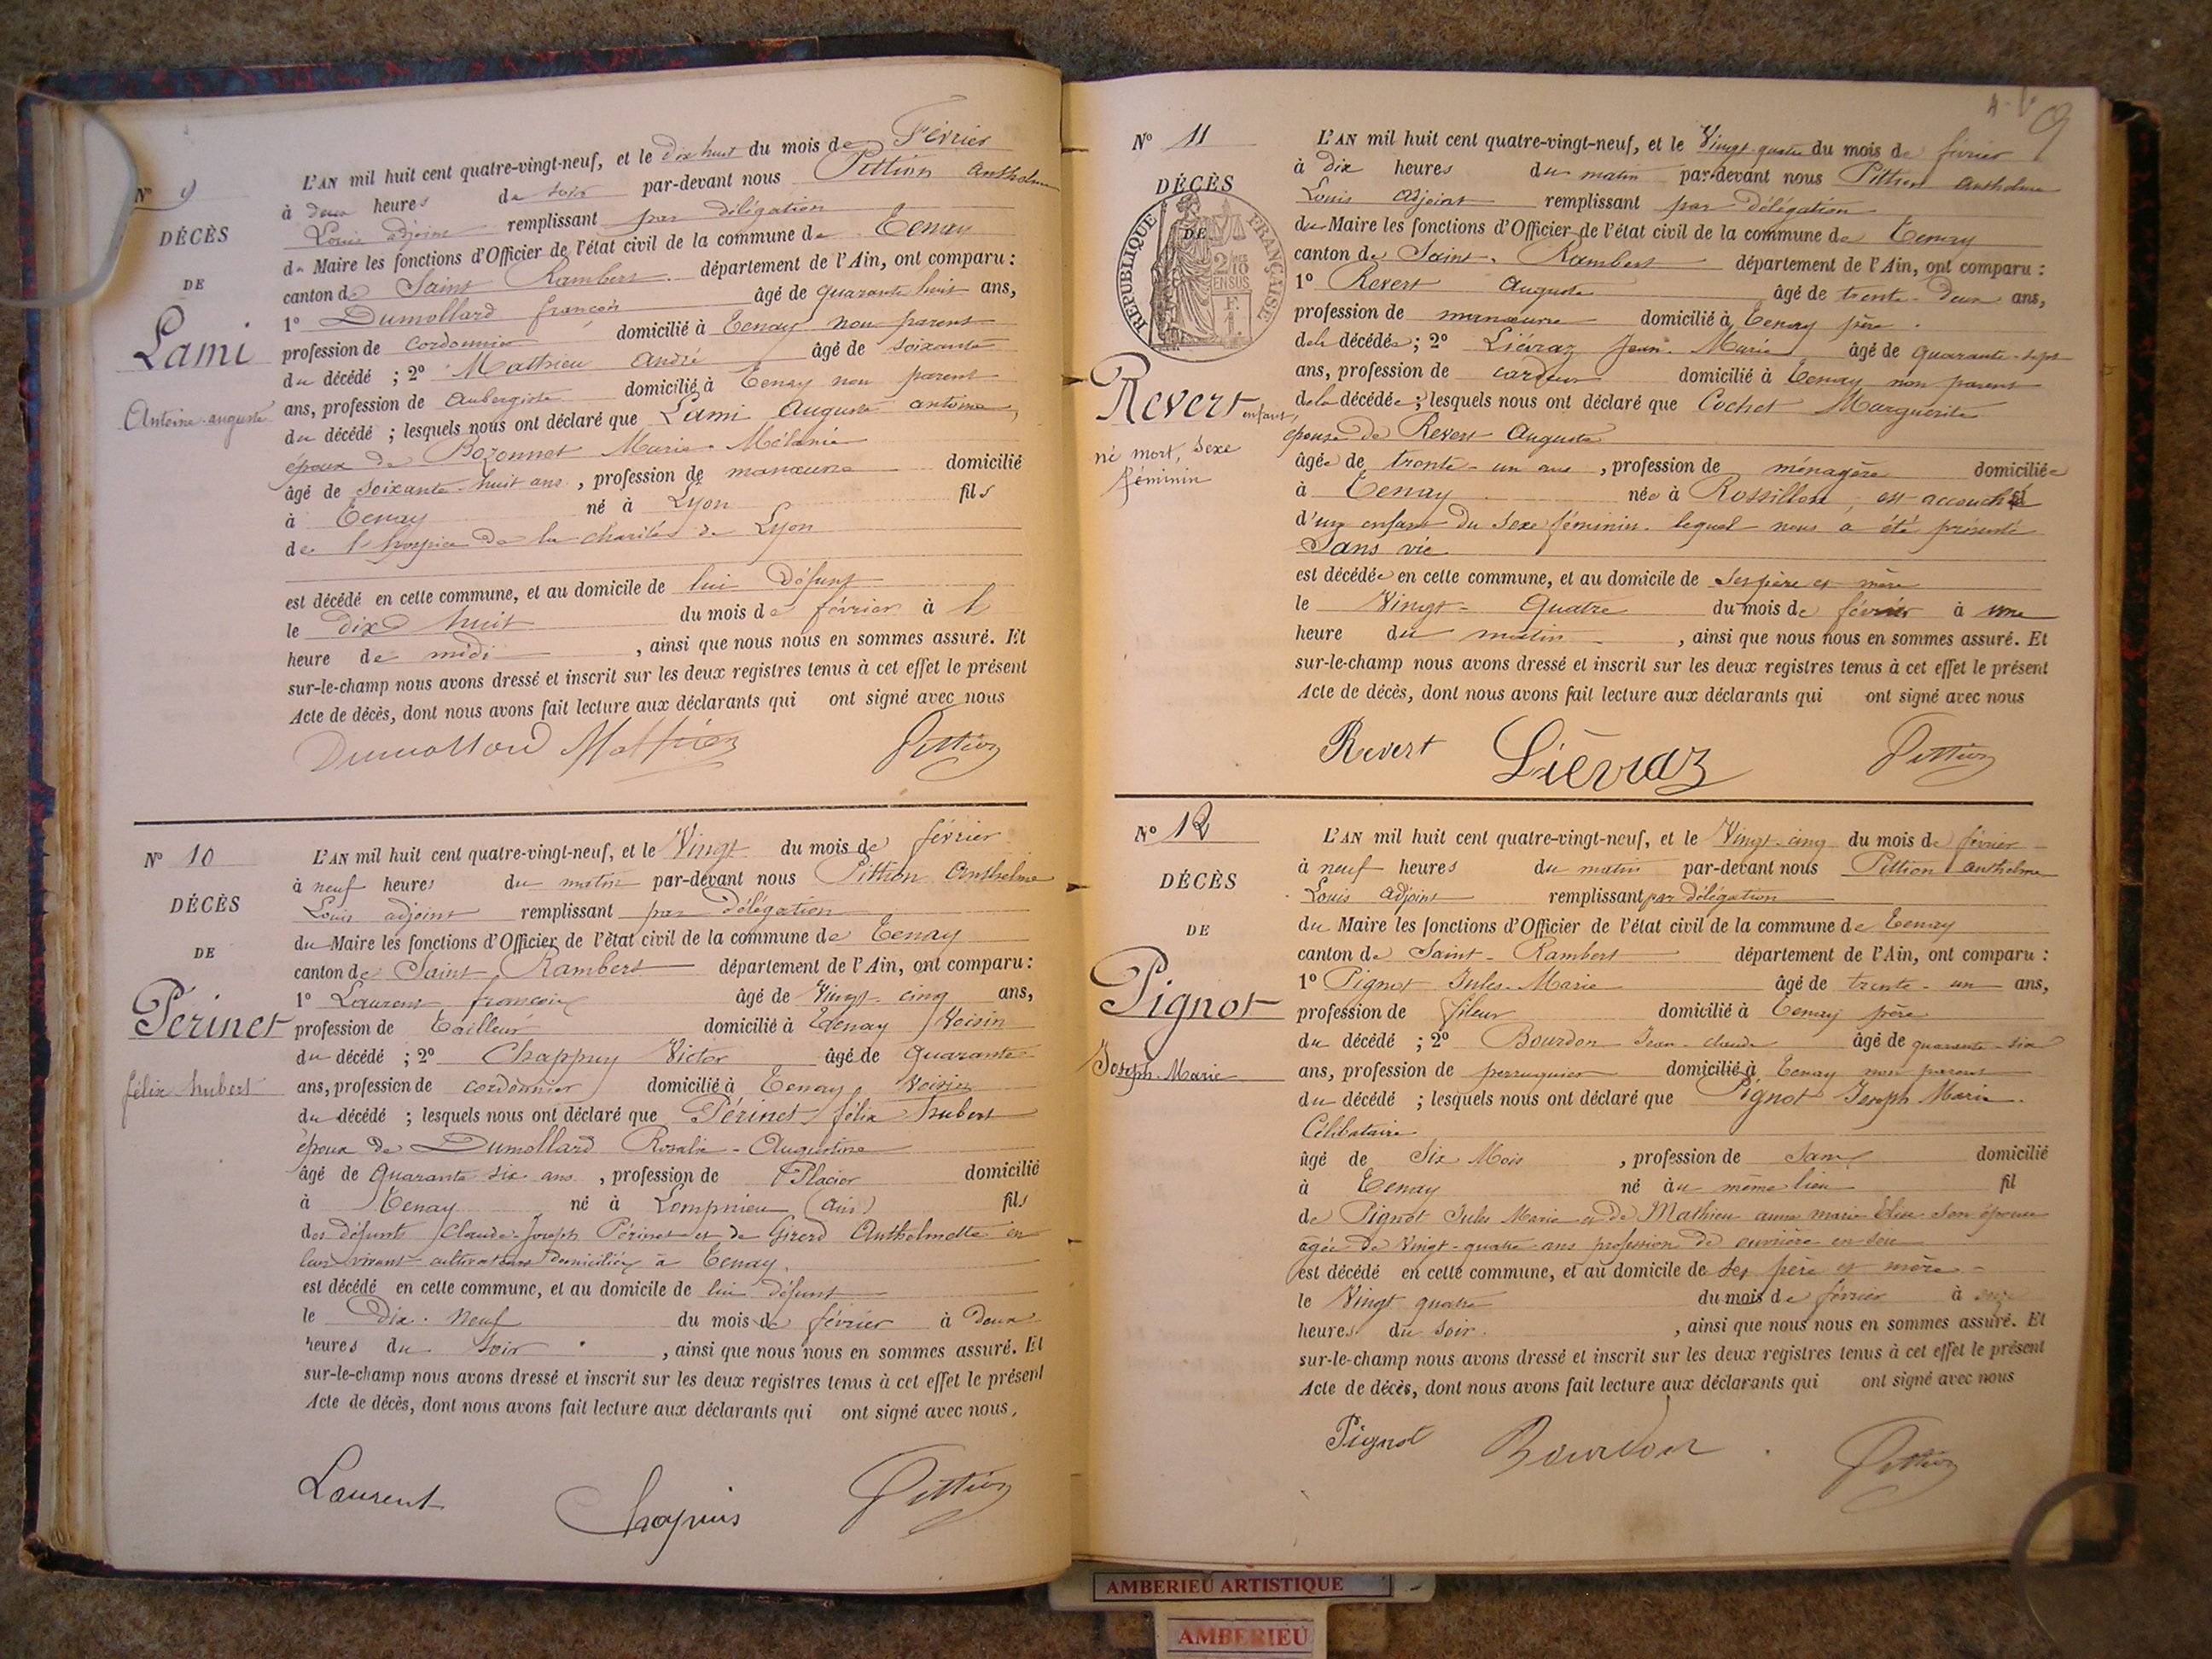 Nº 9
DÉCÈS
DE
Lami
Antoine-auguste
L'AN mil huit cent quatre-vingt-neuf, et le Dix huit du mois de Février
à deux heures du soir par-devant nous Pittion Anthelme
Louis adjoint remplissant par délégation
du Maire les fonctions d'Officier de l'état civil de la commune de Tenay
canton de Saint Rambert département de l'Ain, ont comparu :
1º Dumollard françois âgé de quarante huit ans,
profession de cordonnier domicilié à Tenay non parent
du décédé ; 2º Mathieu André âgé de soixante
ans, profession de Aubergiste domicilié à Tenay non parent
du décédé ; lesquels nous ont déclaré que Lami Auguste antoine,
époux de Bozonnet Marie-Mélanie
âgé de soixante-huit ans, profession de manœuvre domicilié
à Tenay né à Lyon fils
de l'hospice de la charité de Lyon
est décédé en cette commune, et au domicile de lui défunt
le dix huit du mois de février à l
heure de midi, ainsi que nous nous en sommes assuré. Et
sur-le-champ nous avons dressé et inscrit sur les deux registres tenus à cet effet le présent
Acte de décès, dont nous avons fait lecture aux déclarants qui ont signé avec nous
Dumollard Mathieu Pittion
Nº 10
DÉCÈS
DE
Périnet
félix hubert
L'AN mil huit cent quatre-vingt-neuf, et le Vingt du mois de février
à neuf heures du matin par-devant nous Pittion Anthelme
Louis adjoint remplissant par délégation
du Maire les fonctions d'Officier de l'état civil de la commune de Tenay
canton de Saint Rambert département de l'Ain, ont comparu :
1º Laurent françois âgé de Vingt-cinq ans,
profession de Tailleur domicilié à Tenay Voisin
du décédé ; 2º Chappuy Victor âgé de quarante
ans, profession de cordonnier domicilié à Tenay Voisin
du décédé ; lesquels nous ont déclaré que Périnet félix hubert
époux de Dumollard Rosalie-Augustine
âgé de Quarante six ans, profession de Placier domicilié
à Tenay né à Lompnieu (ain) fils
des défunts Claude-Joseph Périnet et de Girerd Anthelmette en
leur vivant cultivateurs domiciliés à Tenay.
est décédé en cette commune, et au domicile de lui défunt
le Dix-Neuf du mois de février à Deux
heures du soir, ainsi que nous nous en sommes assuré. Et
sur-le-champ nous avons dressé et inscrit sur les deux registres tenus à cet effet le présent
Acte de décès, dont nous avons fait lecture aux déclarants qui ont signé avec nous,
Laurent Chapuis Pittion
9
Nº 11
DÉCÈS
DE
RÉPUBLIQUE FRANÇAISE
Revert enfant,
né mort, sexe
féminin
L'AN mil huit cent quatre-vingt-neuf, et le Vingt-quatre du mois de février
à dix heures du matin par-devant nous Pittion anthelme
Louis adjoint remplissant par délégation
du Maire les fonctions d'Officier de l'état civil de la commune de Tenay
canton de Saint-Rambert département de l'Ain, ont comparu :
1º Revert Auguste âgé de trente-deux ans,
profession de manœuvre domicilié à Tenay père
de la décédée ; 2º Liévraz Jean-Marie âgé de quarante-sept
ans, profession de cardeur domicilié à Tenay non parent
de la décédée ; lesquels nous ont déclaré que Cochet Marguerite
épouse de Revert Auguste
âgée de trente-un ans, profession de ménagère domiciliée
à Tenay née à Rossillon, est accouché
d'un enfant du sexe féminin lequel nous a été présenté
Sans vie
est décédée en cette commune, et au domicile de ses père et mère
le Vingt-Quatre du mois de février à une
heure du matin, ainsi que nous nous en sommes assuré. Et
sur-le-champ nous avons dressé et inscrit sur les deux registres tenus à cet effet le présent
Acte de décès, dont nous avons fait lecture aux déclarants qui ont signé avec nous
Revert Liévraz Pittion
Nº 12
DÉCÈS
DE
Pignot
Joseph-Marie
L'AN mil huit cent quatre-vingt-neuf, et le Vingt-cinq du mois de février
à neuf heures du matin par-devant nous Pittion anthelme
Louis adjoint remplissant par délégation
du Maire les fonctions d'Officier de l'état civil de la commune de Tenay
canton de Saint-Rambert département de l'Ain, ont comparu :
1º Pignot Jules-Marie âgé de trente-un ans,
profession de fileur domicilié à Tenay père
du décédé ; 2º Bourdon Jean-claude âgé de quarante-six
ans, profession de perruquier domicilié à Tenay non parent
du décédé ; lesquels nous ont déclaré que Pignot Joseph Marie
Célibataire
âgé de Six Mois, profession de Sans domicilié
à Tenay né au même lieu fil
de Pignot Jules Marie et de Mathieu anne marie Élise son épouse
âgée de Vingt-quatre ans profession de ouvrière en soie
est décédé en cette commune, et au domicile de ses père et mère
le Vingt quatre du mois de février à
heures du soir, ainsi que nous nous en sommes assuré. Et
sur-le-champ nous avons dressé et inscrit sur les deux registres tenus à cet effet le présent
Acte de décès, dont nous avons fait lecture aux déclarants qui ont signé avec nous
Pignot Bourdon Pittion
AMBERIEU ARTISTIQUE
AMBERIEU